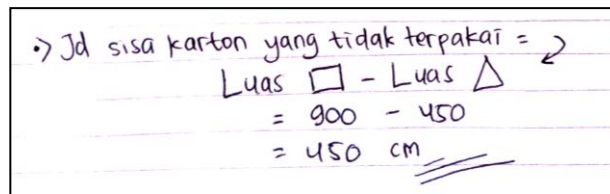 •> Jd sisa karton yang tidak terpakai =
Luas □ - Luas △
= 900 - 450
= 450 cm